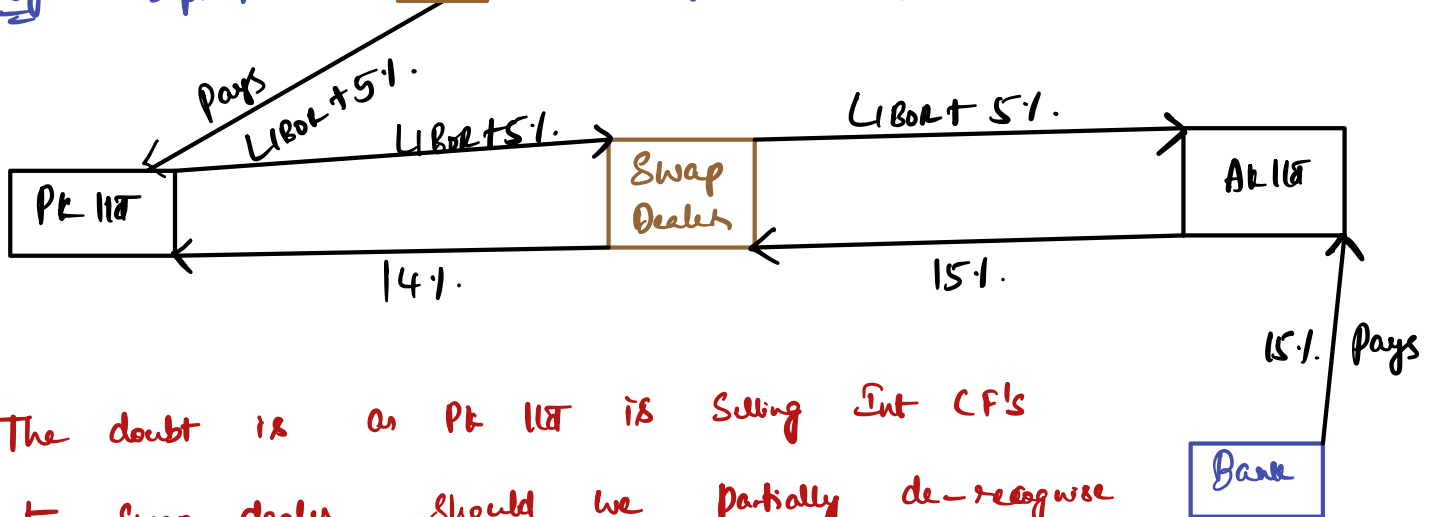 Pays
LIBOR + 5%.
LIBOR+5%.
LIBOR + 5%.
Swap
Dealer
14%.
15%.
15%. Pays
The doubt is as PK is Selling Int CF's
Swap dealer should we Partially de-recognise
Bank